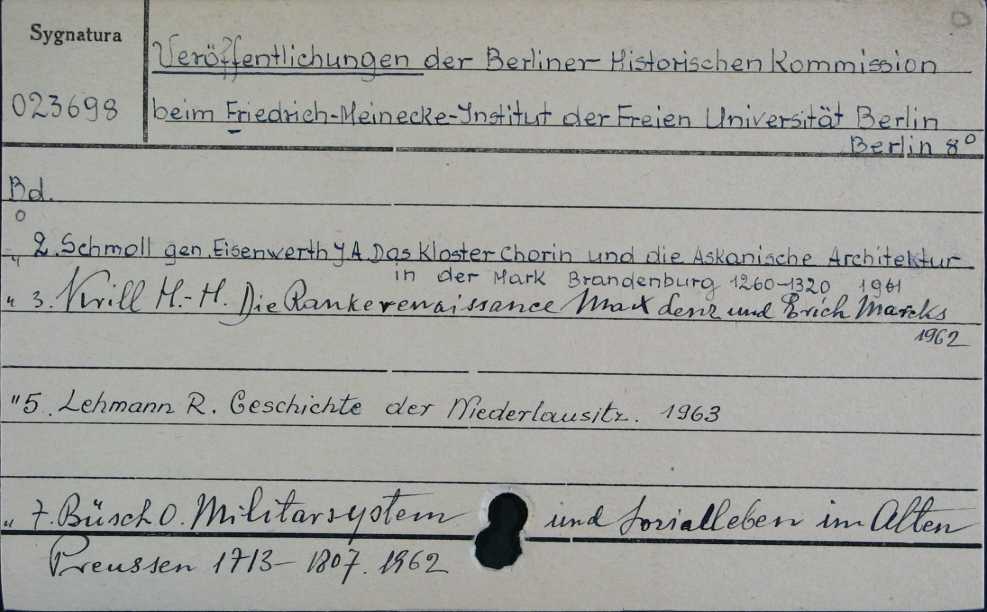 Sygnatura
Veröffentlichungen der Berliner Historischen Kommission
023698
beim Friedrich-Meinecke-Institut der Freien Universität Berlin
Berlin 8°
Bd.
" 2. Schmoll gen. Eisenwerth J.A. Das Kloster Chorin und die Askanische Architektur
in der Mark Brandenburg 1260-1320 1961
" 3. Krill H.-H. Die Rankerenaissance Max Lenz und Erich Marcks
1962
" 5. Lehmann R. Geschichte der Niederlausitz. 1963
" 7. Büsch O. Militarsystem und Sozialleben im Alten
Preussen 1713-1807. 1962